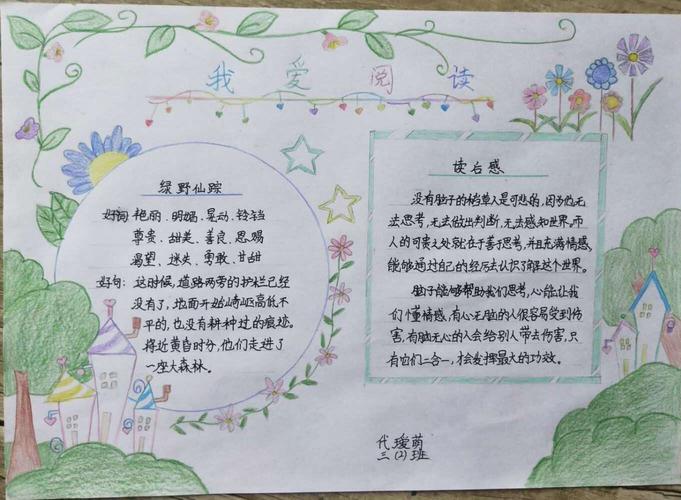 我爱阅读
绿野仙踪
好词：艳丽、明媚、晃动、铃铛
尊贵、甜美、善良、恩赐
渴望、迷失、勇敢、甘甜
好句：这时候，道路两旁的护栏已经
没有了，地面开始崎岖高低不
平的，也没有耕种过的痕迹。
将近黄昏时分，他们走进了
一座大森林。
读后感
没有脑子的稻草人是可悲的，因为他无
法思考，无法做出判断，无法感知世界。而
人的可贵之处就在于善于思考，并且充满情感，
能够通过自己的经历去认识了解这个世界。
脑子能够帮助我们思考，心能让我
们懂情感，有心无脑的人很容易受到伤
害，有脑无心的人会给别人带去伤害，只
有它们二合一，才会发挥最大的功效。
代瑷萌
三(2)班